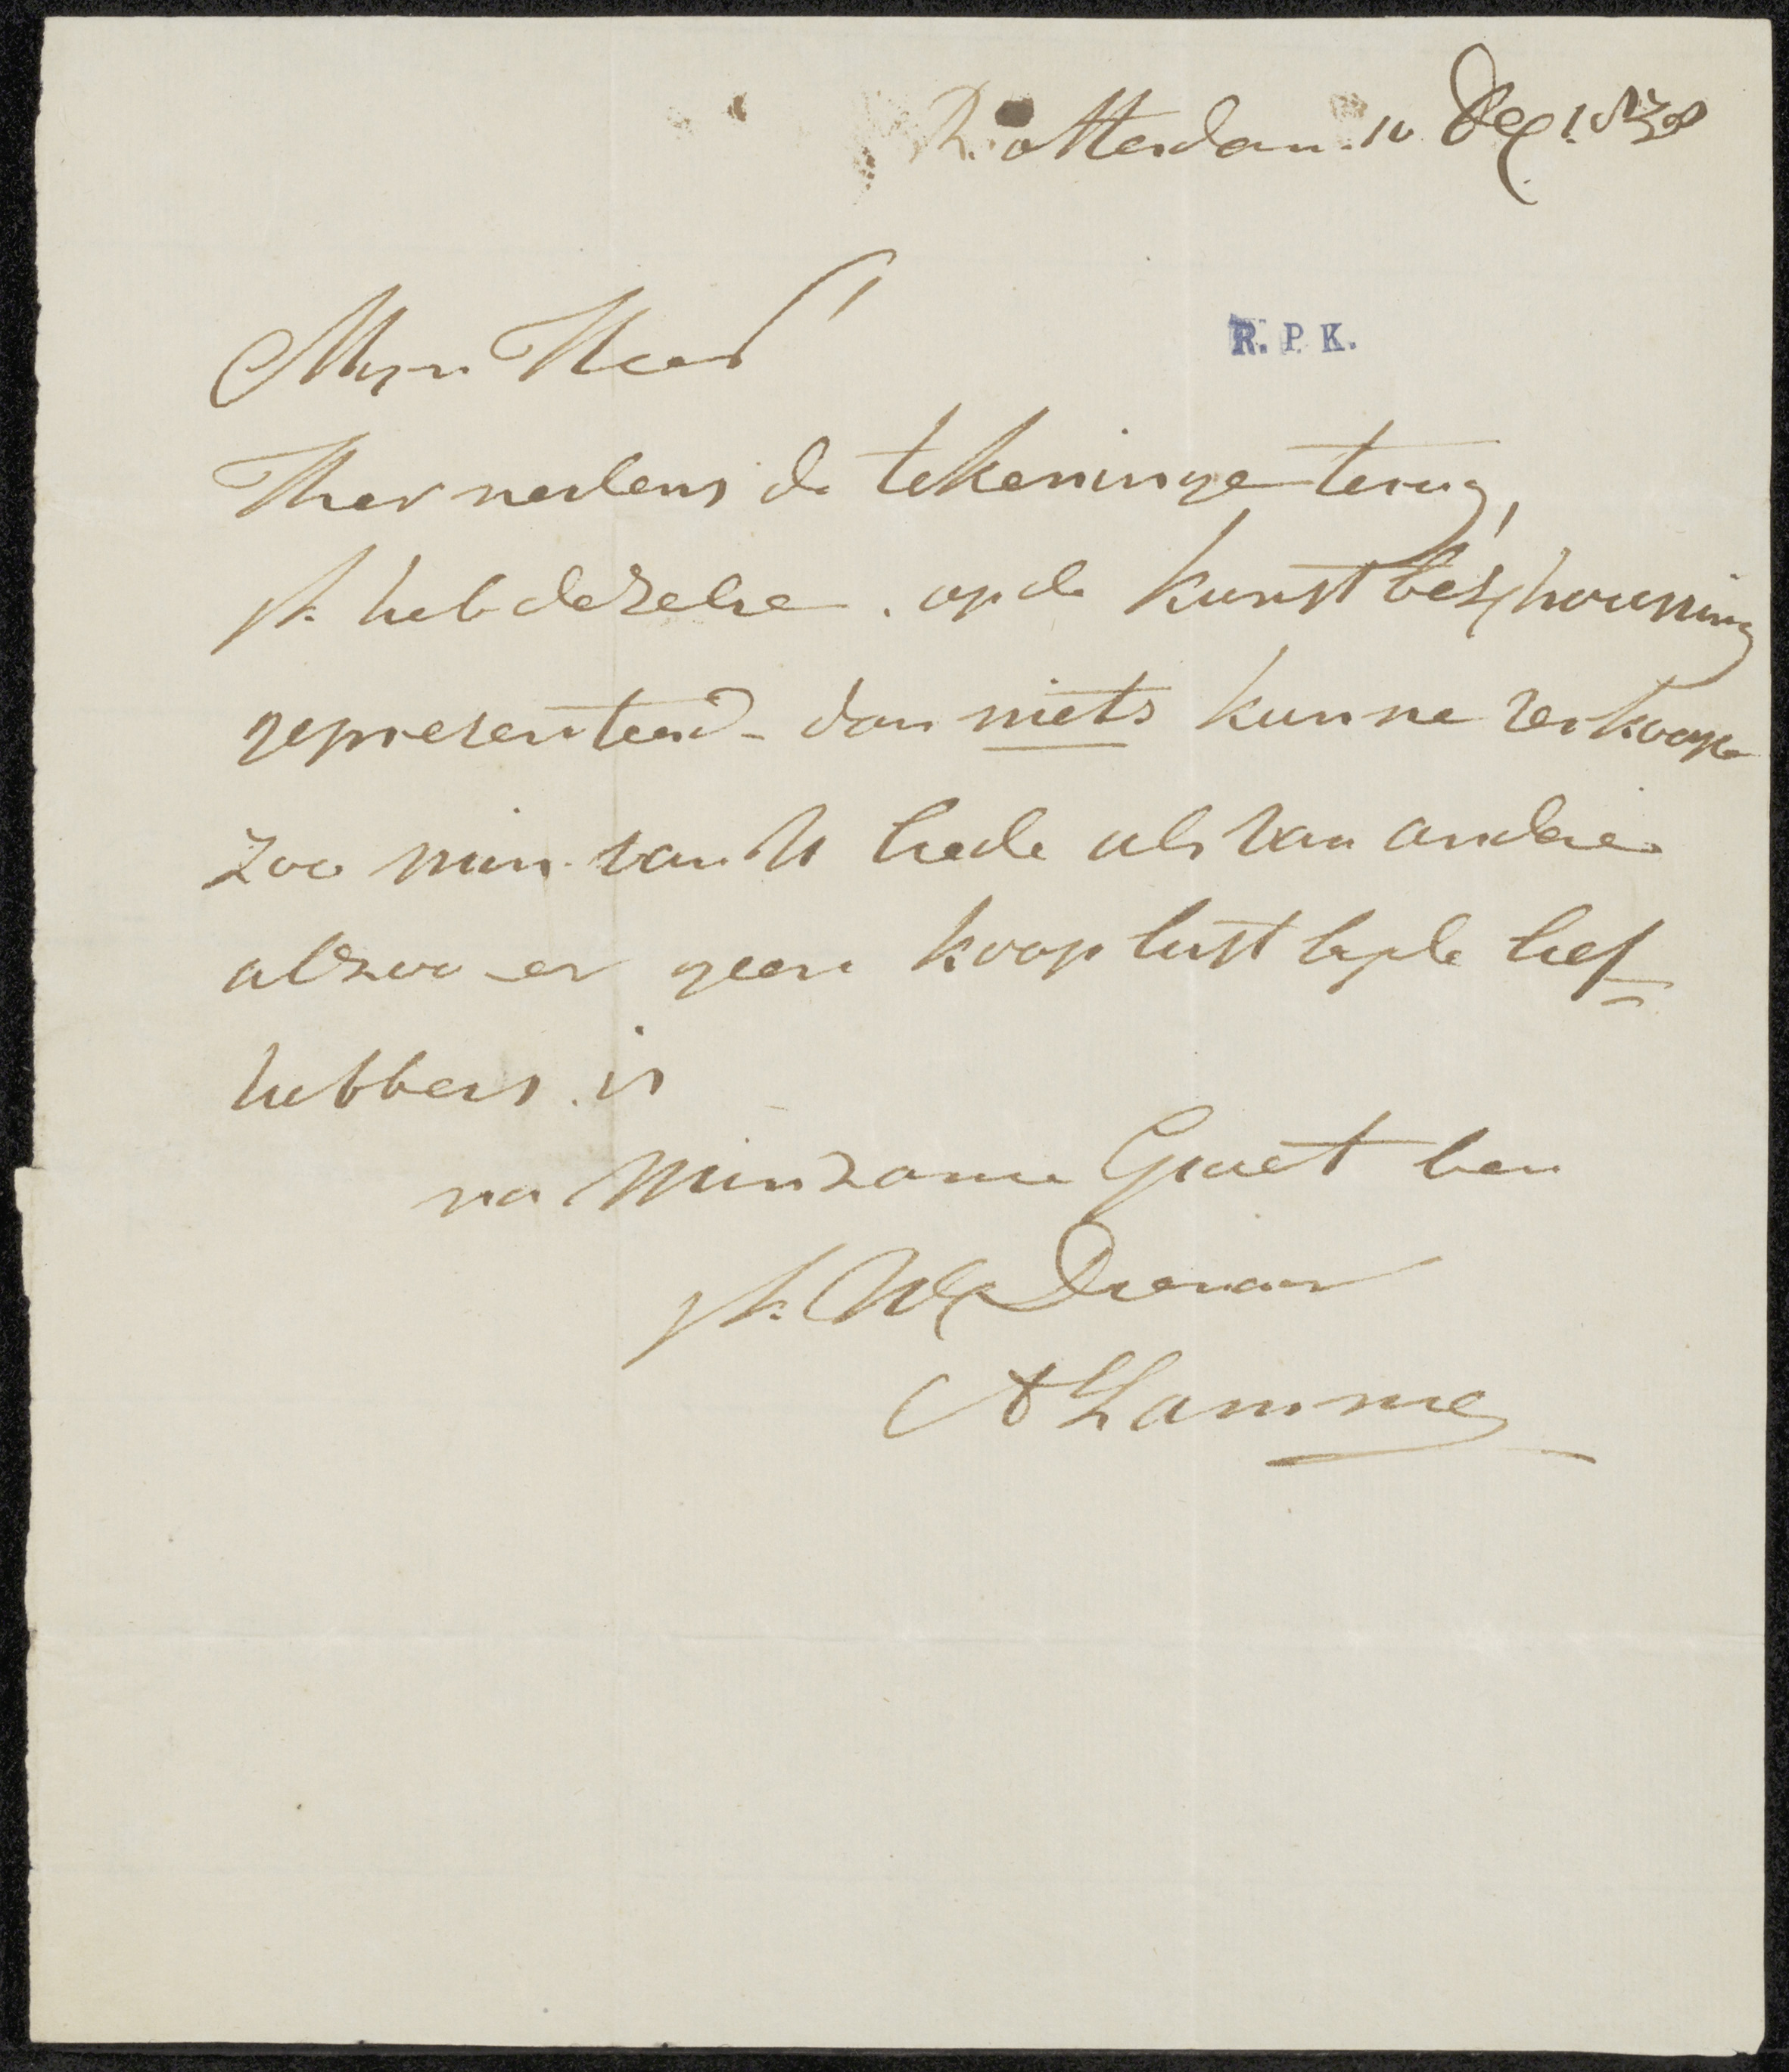 Rotterdam. 10 Dec 1838
R. P. K.
Myn Heer
Hier nevens de tekeninge terug,
Ik heb dezelve. op de kunstbeschouwing
gepresenteerd - dan niets kunne verkoope
Zoo min van U liede als van andere
alzoo er geen kooplust by de lief=
hebbers. is
na Minzame Groet ben
Ik. UE Dienaar
A Lamme